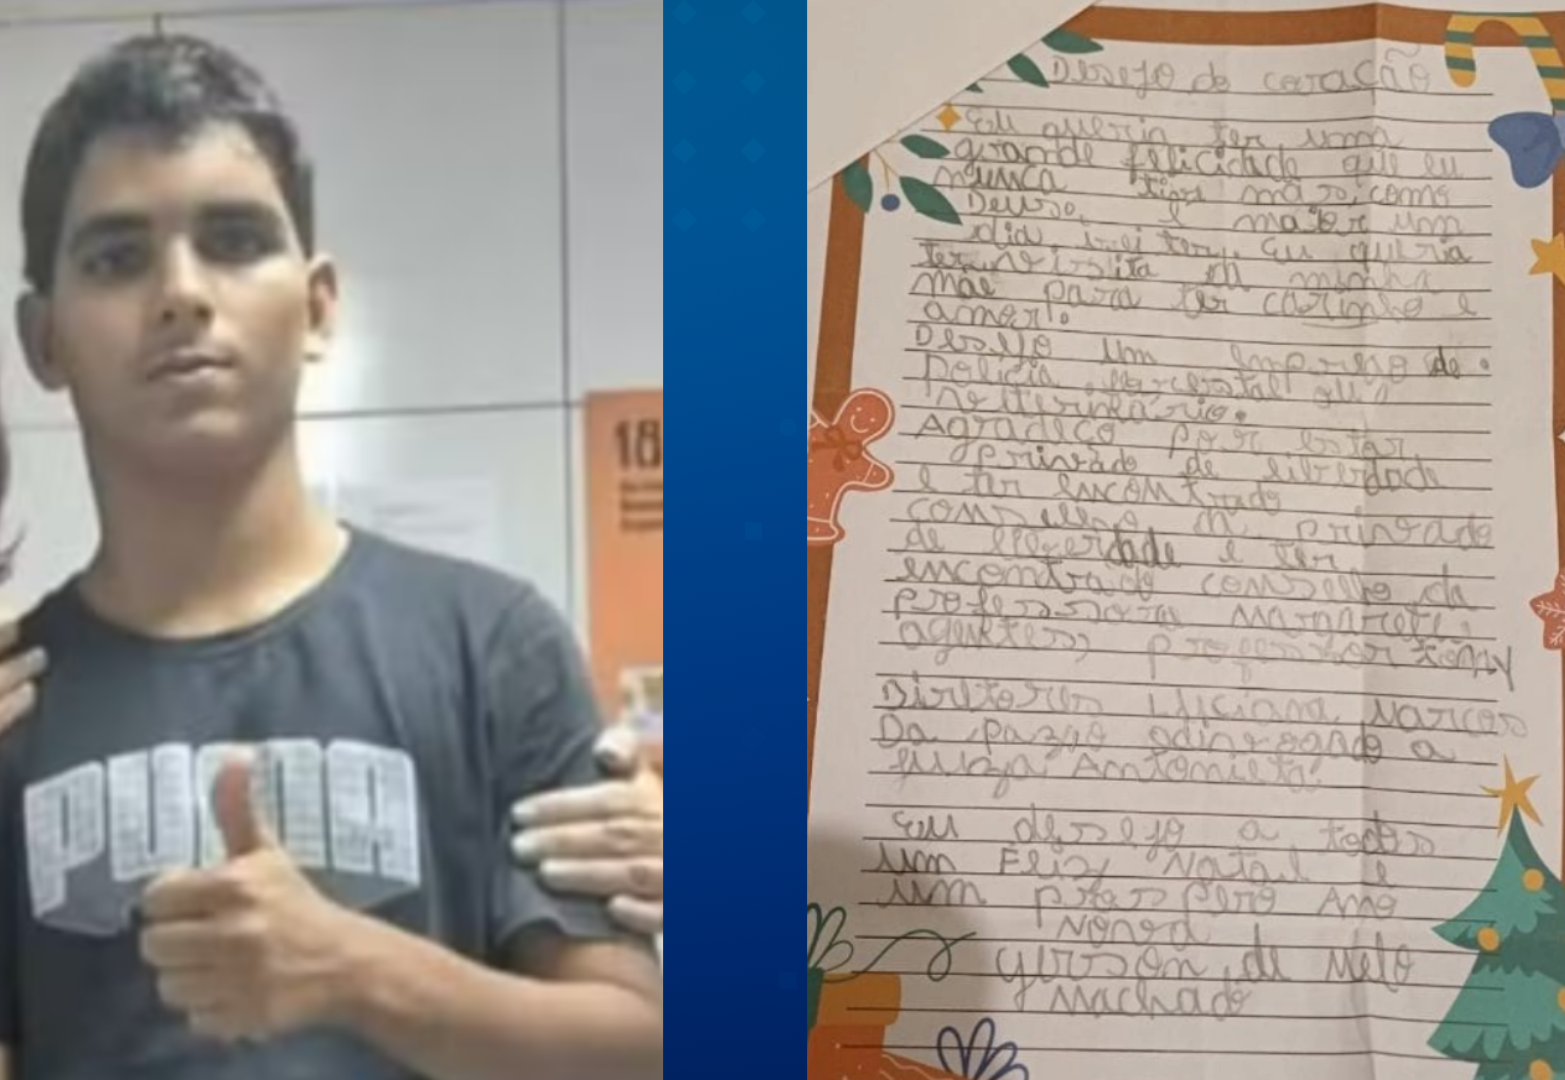 PUMA
18
Desejo do coração
Eu queria ter uma
grande felicidade que eu
nunca tive mas como
Deus é maior um
dia irei ter. Eu queria
ter visita da minha
mãe para ter carinho e
amor.
Desejo um emprego de
Policia florestal ou
veterinário.
Agradeço por estar
privado de liberdade
e ter encontrado
conselho privado
de liberdade e ter
encontrado conselho da
professora Margareti,
agentes, professor Tonny
Diretores Luciana Marcos
Da
juiza Antonieta.
Eu desejo a todos
um Eliz Natal e
um prospero Ano
Novo
Gerson de Melo
Machado